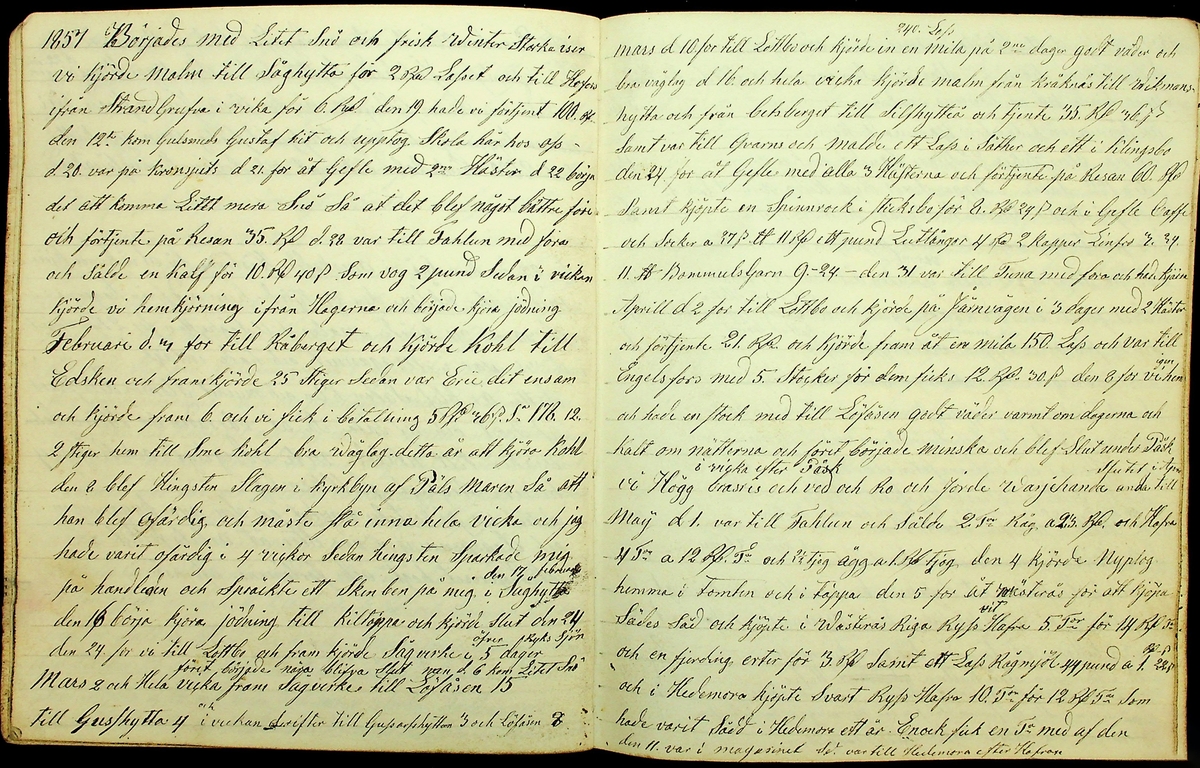 1857 Börjades med Litet Snö och frisk Winter Starka iser
vi kjörde malm till Såghytta för 2 Rd Lasset och till Hofors
ifrån Strand Grufva i vika för 6 Rd den 19 hade vi förtjent 100 Rd
den 12te kom Gulsmeds Gustaf hit och upptog Skola här hos oss -
d. 20. var på kronspits d 21 for åt Gefle med 2ne Hästar d 22 börja
det att komma Litet mera Snö Så at det blef något bättre före
och förtjente på Resan 35 Rd d. 28 var till Fahlun med fora
och Sålde en kalf för 10 Rd 40 s Som vog 2 pund Sedan i vickan
kjörde vi hemkjörning ifrån Hagerna och började kjöra jödning
Februari d. for till Råberget och kjörde Kohl till
Edsken och framkjörde 25 Stiger Sedan var Eric dit ensam
och kjörde fram 6. och vi fick i betallning 5 Rd 26 s. St 176. 12.
2 stiger hem till Sme kohl bra wäglag detta år att kjöra Kohl
den 8 blef Hingsten Slagen i kyrkbyn af Påls Maren Så att
han blef ofärdig och måste stå inna hela vicka och jag
hade varit ofärdig i 4 vickor Sedan hingsten Sparkade mig
på handleden och Spräckte ett Sken ben på mig i Såghytte
den 17 februari
den 16 börja kjöra jödning till kiltäppa och kjörde slut den 24
den 24 for vi till Lottbo och fram kjörde Sågverke i 5 dager
öfver Ryks Sjön
föret började nöga blifva Slut men d. 6 kom Litet Snö
Mars 2 och Hela vicka fram Sågverke till Löfåsen 15
till Gusshytta 4 och i veckan derefter till Gusarfshyttan 3 och Löfåsen 8
240. Lass
mars d 10 for till Lottbo och kjörde in en mila på 2ne dager godt väder och
bra väglag d 16 och hela vicka kjörde malm från kråknäs till rickmans
hytta och från betsberget till Silfhytta och tjente 35. Rd 36 s
Samt var till Qvarns och malde ett Lass i Säther och ett i Silingsbo
den 24 for åt Gefle med alla 3 Hästerna och förtjente på Resan 60. Rd
Samt kjöpte en Spinnrock i Stiksbo för 8. Rd 24 s och i Gefle Caffe
och Socker a 37 s tt 11 Rd ett pund Lutlånger 4 Rd 2 kappar Linfrö 2. 24
11. tt Bommulsgarn 9-24 - den 31 var till Tuna med fora och hade kjära
Aprill d 2 for till Lottbo och kjörde på Järnvägen i 3 dager med 2 Hästar
och förtjente 21. Rd. och kjörde fram åt en mila 150. Lass och var till
Engelsfors med 5. Stocker för dem ficks 12. Rd. 30 s den 8 for vi hem
igen
och hade en stock med till Löfåsen godt väder varmt om dagerna och
kalt om nätterna och föret började minska och blef Slut under Påsk
i vicka efter Påsk
vi Högg brasris och ved och Ro och jorde Warjehanda anda till
Slutet i Apr
Maij d 1. var till Fahlun och Sålde 2 Tnr Råg a 23. Rd. och Hafra
4 Tnr a 12 Rd. Tn och tjog ägg a 1 Rd tjog den 4 kjörde Nyplog
hemma i Tomten och i täppa den 5 for åt wästerås för att kjöpa
Sädes Säd och kjöpte i Wästerås Riga Ryss vit Hafra 5. Tnr för 14 Rd Tn
och en fjerding erter för 3 Rd Samt ett Lass Rågmjöl 44 pund a 1. 28
och i Hedemora kjöpte Svart Ryss Hafra 10. Tnr för 12 Rd Tn Som
hade varit Sådd i Hedemora ett år Enock fick en Tn med af den
den 11. var i magasinet d. var till Hedemora efter Hafran